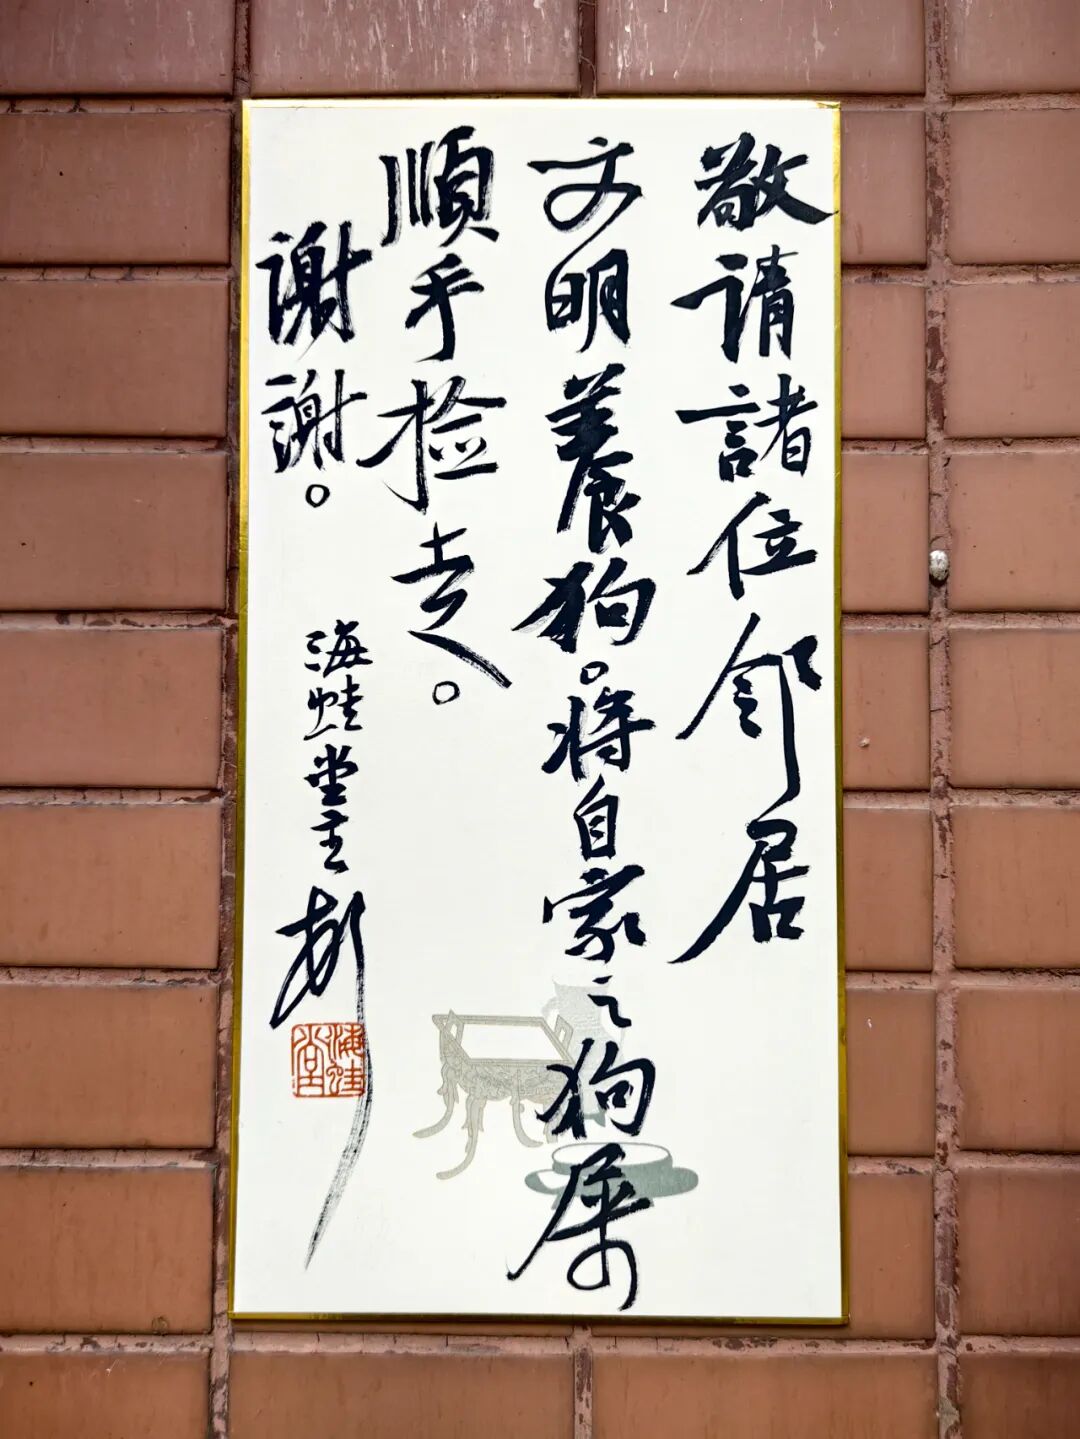 敬请諸位邻居
文明養狗。将自家之狗屎
順手捡走。
謝謝。
海蛙堂主
海蛙堂